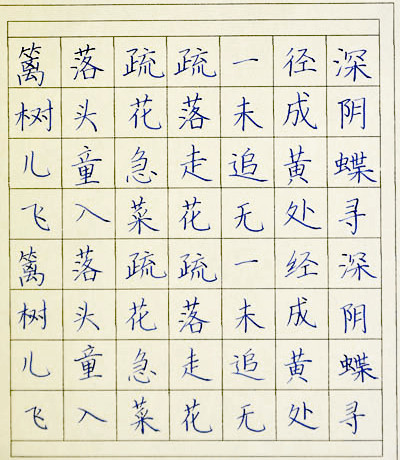 篱落疏疏一径深
树头花落未成阴
儿童急走追黄蝶
飞入菜花无处寻
篱落疏疏一经深
树头花落未成阴
儿童急走追黄蝶
飞入菜花无处寻